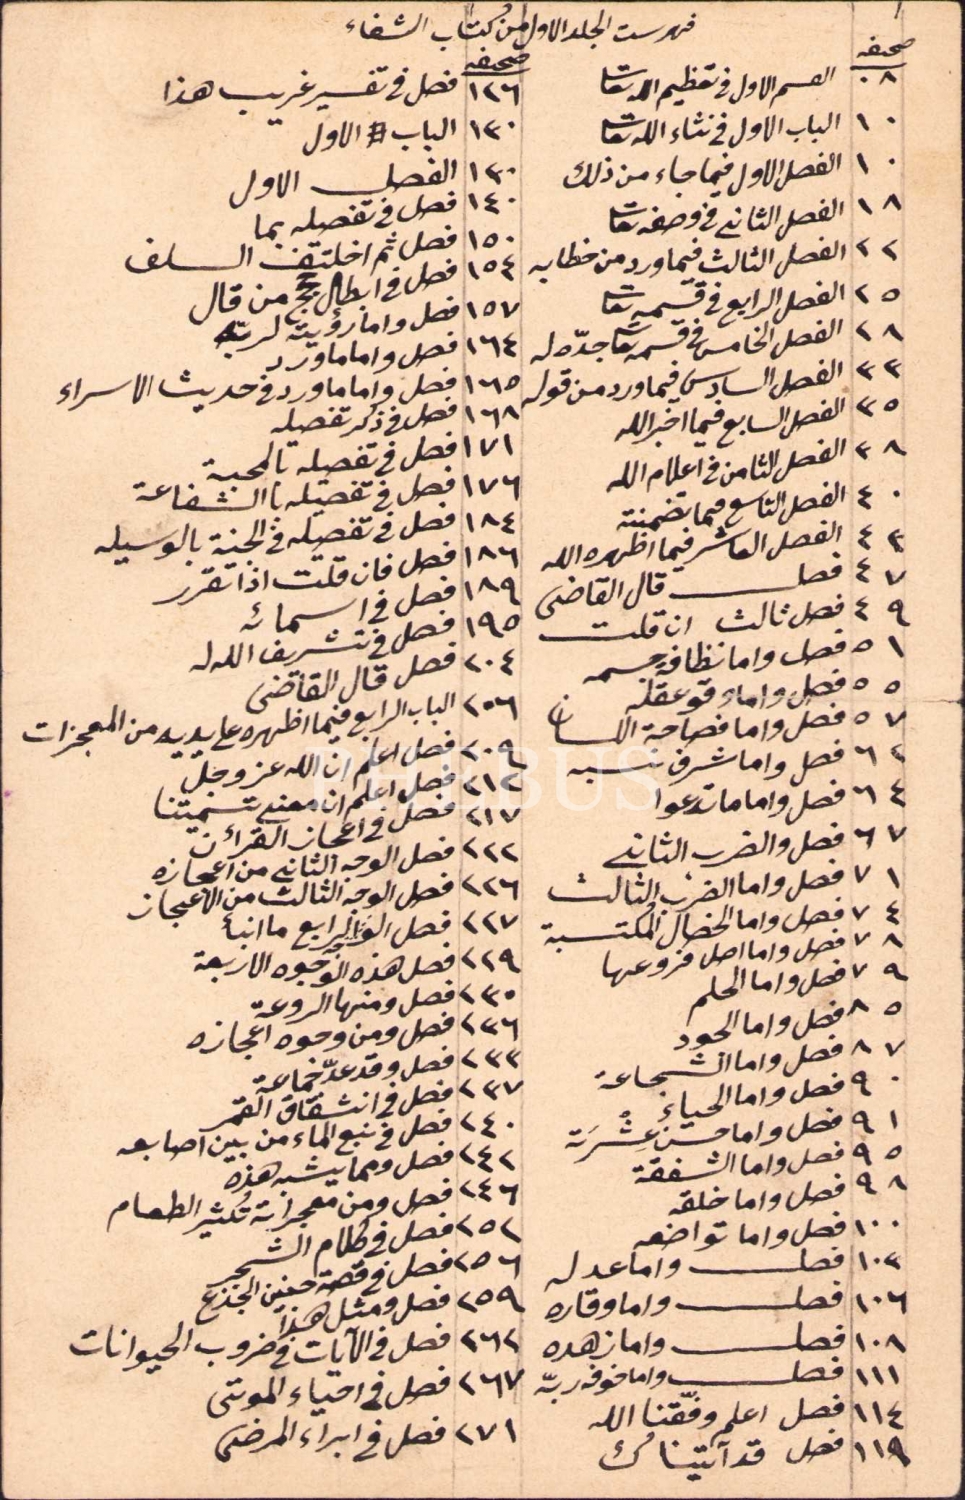 فهرست الجلد الاول من كتاب الشفاء
صحيفه
٠٨ القسم الاول في تعظيم الله تعا
١٠ الباب الاول في ثناء الله تعا
١٠ الفصل الاول فيما جاء من ذلك
١٨ الفصل الثاني في وصفه تعا
٢٢ الفصل الثالث فيما ورد من خطابه
٢٥ الفصل الرابع في قسمه تعا
٢٨ الفصل الخامس في قسمه تعا جده له
٣٣ الفصل السادس فيما ورد من قوله
٣٥ الفصل السابع فيما اخبر الله
٣٨ الفصل الثامن في اعلام الله
٤٠ الفصل التاسع فيما تضمنته
٤٣ الفصل العاشر فيما اظهره الله
٤٧ فصل قال القاضى
٤٩ فصل ثالث ان قلت
٥١ فصل واما نظافة جسمه
٥٥ فصل واما وقو عقله
٥٧ فصل واما فصاحة اللسان
٦٢ فصل واما شرف نسبه
٦٤ فصل واما ما تدعوا
٦٧ فصل والضرب الثاني
٧١ فصل واما الضرب الثالث
٧٤ فصل واما الخصال المكتسبة
٧٨ فصل واما اصل فروعها
٧٩ فصل واما الحلم
٨٥ فصل واما الجود
٨٧ فصل واما الشجاعة
٩٠ فصل واما الحياء
٩١ فصل واما حسن عِشْرَته
٩٥ فصل واما الشفقة
٩٨ فصل واما خلقه
١٠٠ فصل واما تواضعه
١٠٣ فصل واما عدله
١٠٦ فصل واما وقاره
١٠٨ فصل واما زهده
١١١ فصل واما خوفه ربّه
١١٤ فصل اعلم وفّقنا الله
١١٩ فصل قد آتيناك
صحيفه
١٢٦ فصل في تفسير غريب هذا
١٣٠ الباب الاول
١٣٠ الفصل الاول
١٤٠ فصل في تفصيله بما
١٥٠ فصل ثم اختلف السلف
١٥٤ فصل في ابطال حجج من قال
١٥٧ فصل واما رؤيته لربه
١٦٤ فصل واما ما ورد
١٦٥ فصل واما ما ورد في حديث الاسراء
١٦٨ فصل في ذكر تفصيله
١٧١ فصل في تفصيله بالمحبة
١٧٦ فصل في تفصيله بالشفاعة
١٨٤ فصل في تفصيله في الجنة بالوسيله
١٨٦ فصل فان قلت اذا تقرر
١٨٩ فصل في اسمائه
١٩٥ فصل في تشريف الله له
٢٠٤ فصل قال القاضى
٢٥٦ الباب الرابع فيما اظهره على يديه من المعجزات
٢٠٩ فصل اعلم ان الله عز وجل
٢١٢ فصل اعلم ان معنى تسميتنا
٢١٧ فصل في اعجاز القرآن
٢٢٢ فصل الوجه الثاني من اعجازه
٢٢٦ فصل الوجه الثالث من الاعجاز
٢٢٧ فصل الوجه الرابع ما انبأ
٢٢٩ فصل هذه الوجوه الاربعة
٢٣٠ فصل ومنها الروعة
٢٣٦ فصل ومن وجوه اعجازه
٢٣٣ فصل وقد عدّ جماعة
٢٣٧ فصل في انشقاق القمر
٢٤٠ فصل في نبع الماء من بين اصابعه
٢٤٢ فصل ومما يشبه هذه
٢٤٦ فصل ومن معجزاته تكثير الطعام
٢٥٢ فصل في كلام الشجر
٢٥٦ فصل في قصة حنين الجذع
٢٥٩ فصل ومثل هذا
٢٦٢ فصل في الآيات في ضروب الحيوانات
٢٦٧ فصل في احياء الموتى
٢٧١ فصل في ابراء المرضى
PHEBUS